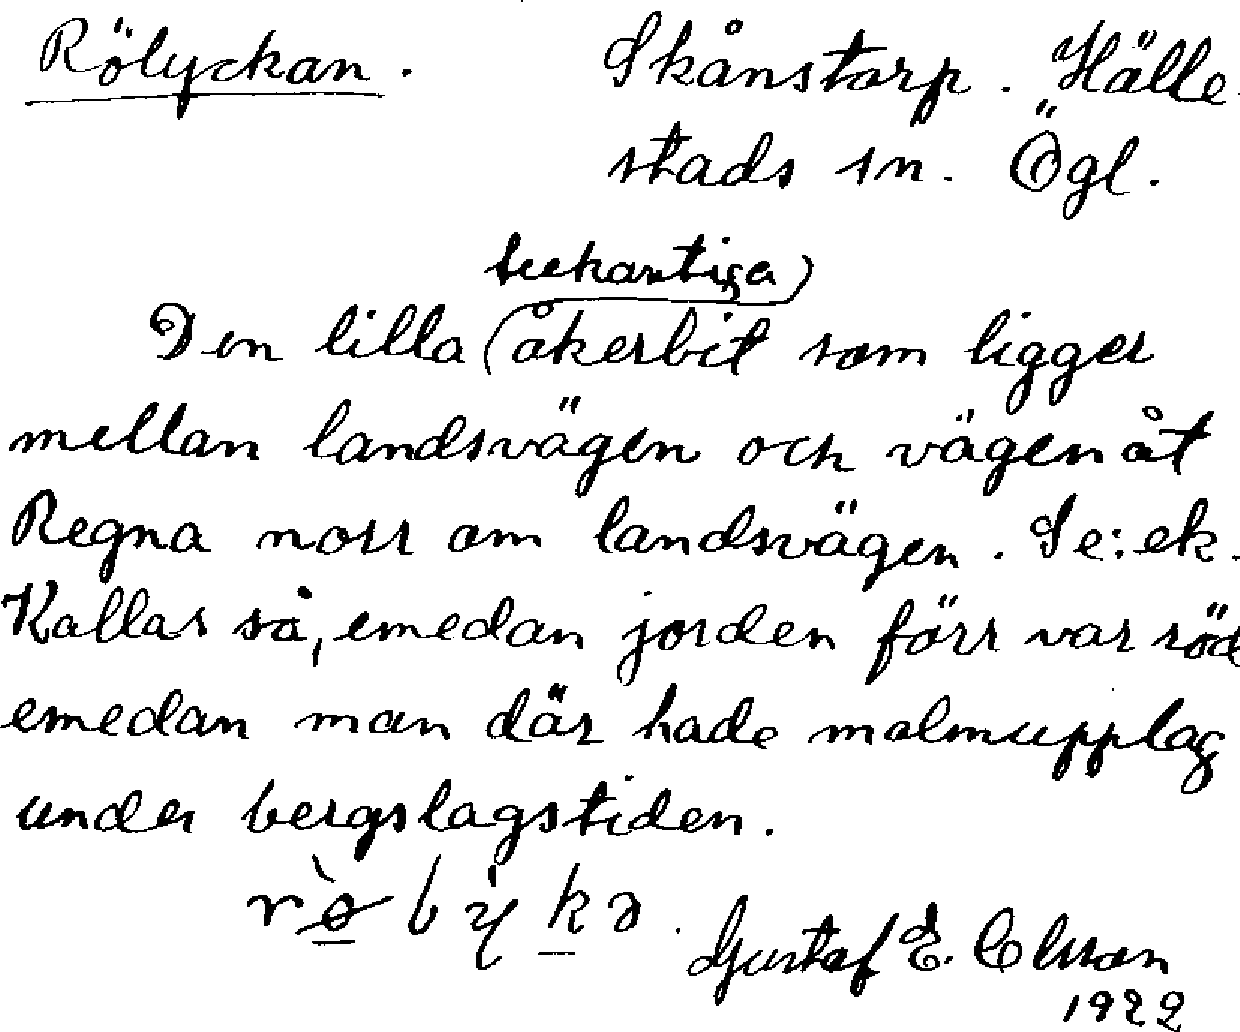 Rölyckan. Skånstorp. Hälle-
stads sn. Ögl.
trekantiga
Den lilla åkerbit som ligger
mellan landsvägen och vägen åt
Regna norr om landsvägen. Se: ek.
Kallas så, emedan jorden förr var röd
emedan man där hade malmupplag
under bergslagstiden.
Gustaf E.
1922